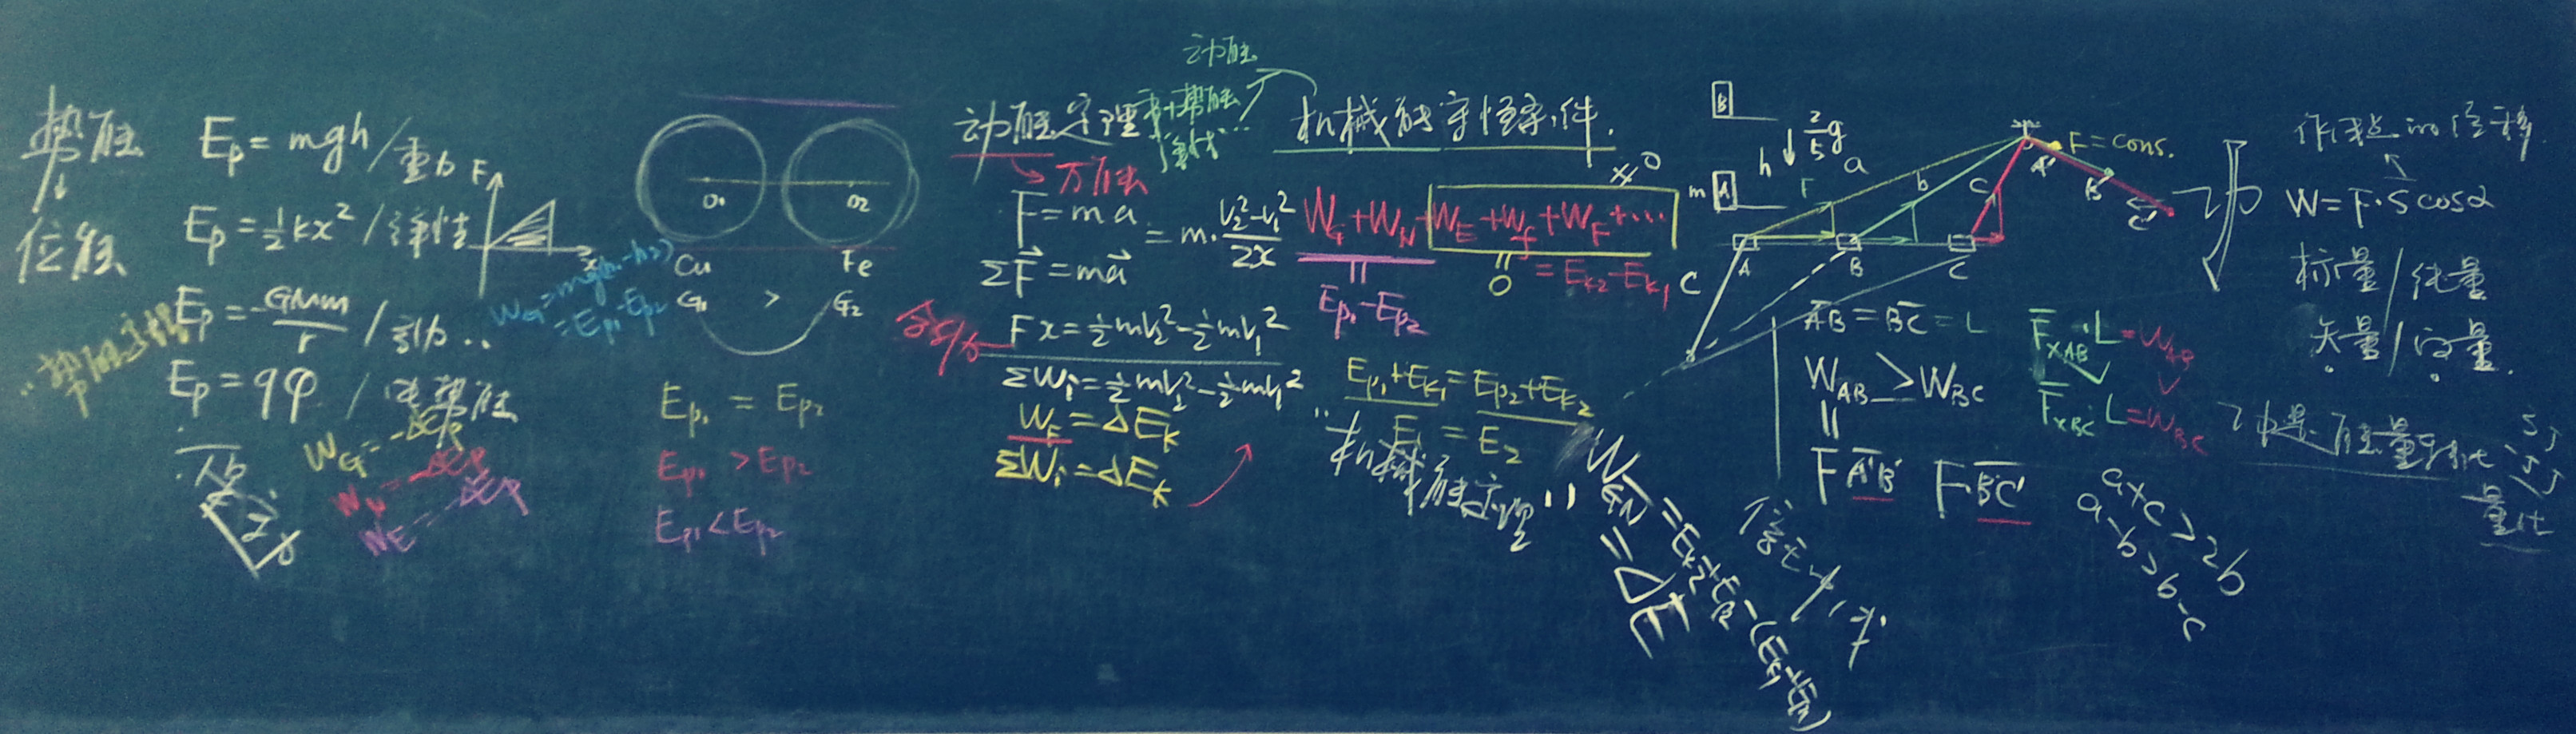 势能
↓
位能
Ep = mgh / 重力
Ep = ½kx² / 弹性
Ep = -GMm/r / 引力..
Ep = qφ / 电势能
F
x
W_G = mg(h₁-h₂)
= Ep₁-Ep₂
W_G = -ΔEp
O₁ O₂
Cu Fe
G₁ > G₂
Ep₁ = Ep₂
Ep₁ > Ep₂
Ep₁ < Ep₂
动能定理
→ 万能
F = ma = m·(V₂²-V₁²)/2x
ΣF⃗ = ma⃗
Fx = ½mV₂² - ½mV₁²
ΣWᵢ = ½mV₂² - ½mV₁²
W_F = ΔE_K
ΣWᵢ = ΔE_K
动能
势能
机械能守恒条件.
≠0
W_G + W_N + W_E + W_f + W_F + ... = E_K2 - E_K1
Ep₁-Ep₂
0
Ep₁+E_K1 = Ep₂+E_K2
E₁ = E₂
"机械能定理"
= ΔE
B
h ↓ 2/5 g
m A
a
F
b
c
F = cons.
A' B' C'
A B C
C
AB = BC = L
W_AB > W_BC
F A'B' F B'C'
F_XAB·L = W_AB
F_XBC·L = W_BC
a+c > 2b
a-b > b-c
功
作用点的位移
W = F·S cosα
标量 / 纯量
矢量 / 向量.
功是能量转化
量化